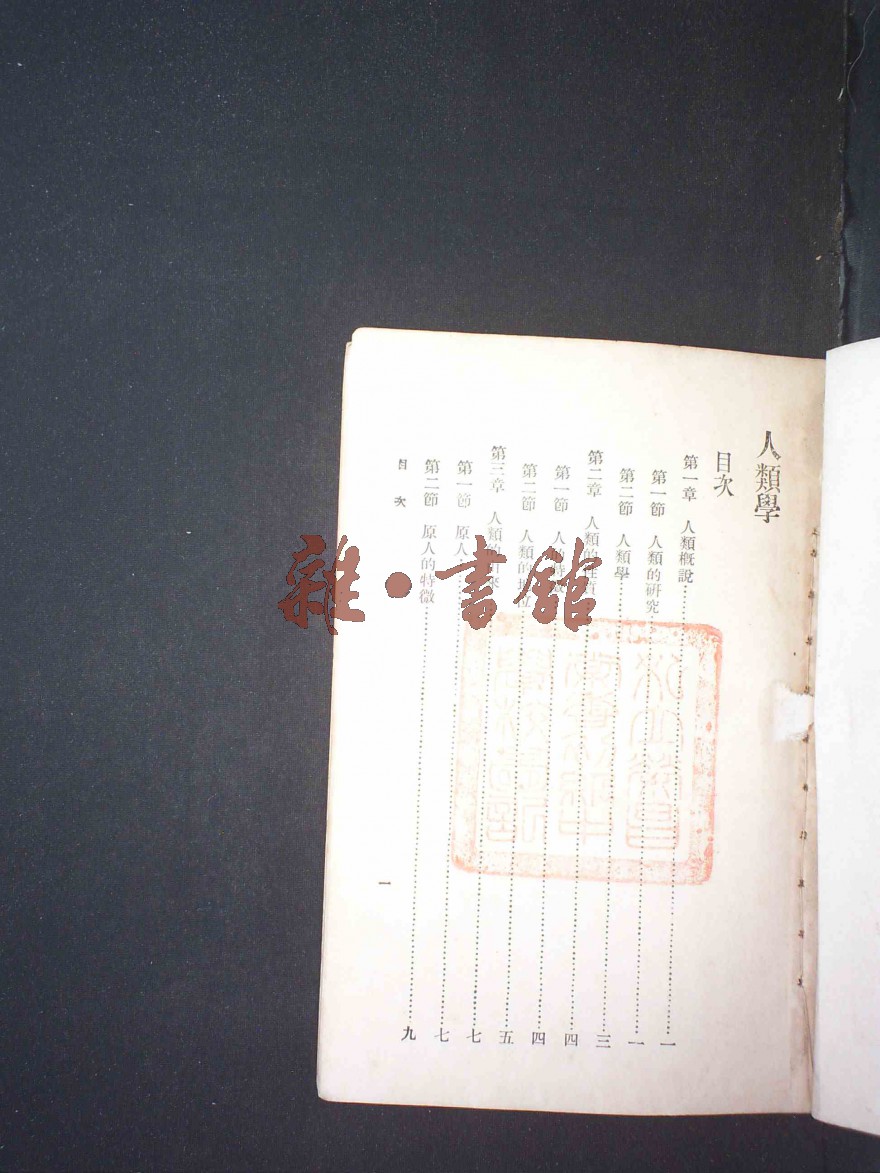 人類學
目次
第一章 人類概說……一
第一節 人類的研究……一
第二節 人類學……三
第二章 人類的性質……四
第一節 人的……四
第二節 人類的位……五
第三章 人類的由來……七
第一節 原人……七
第二節 原人的特徵……九
目次
一
雜·書館